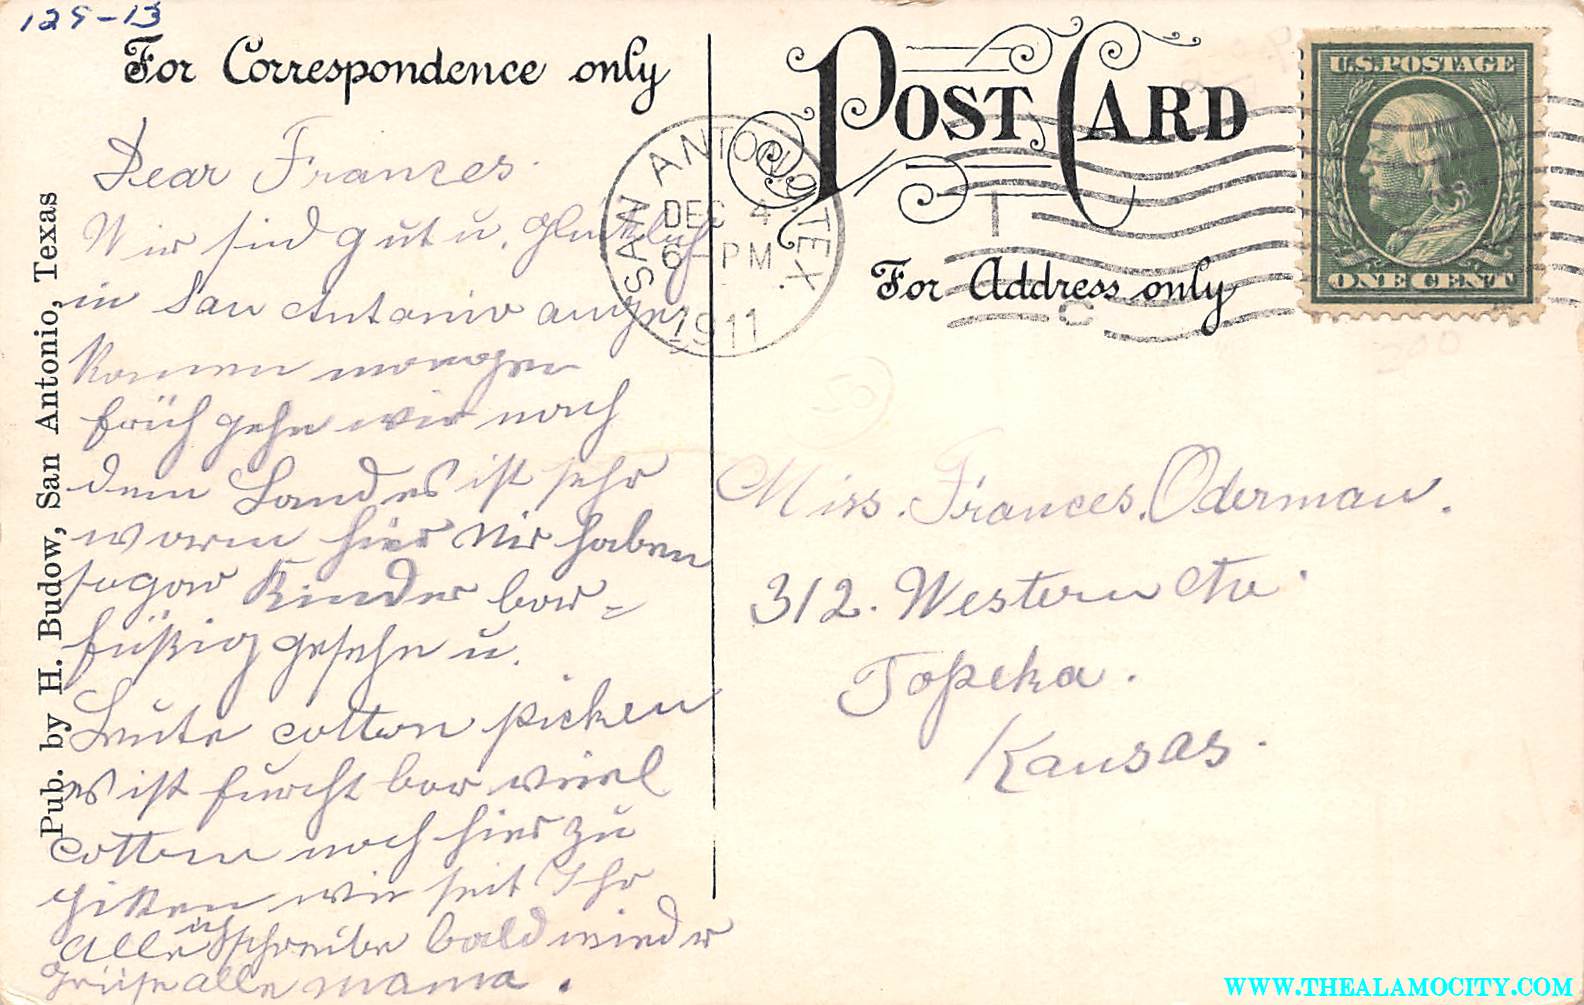 129-13
For Correspondence only
POST CARD
For Address only
U.S. POSTAGE
ONE CENT
SAN ANTONIO, TEX.
DEC 4
6 - PM
1911
Pub. by H. Budow, San Antonio, Texas
Dear Franzes.
Wir sind gut u. glücklich
in San Antonio ange
komen morgen
früh gehn wir nach
dem Landes ist sehr
warm hier Wir haben
sogar Kinder bar-
füßig gesehn u.
Leute cotton picken
es ist furcht bar viel
cotton noch hier zu
piken wie seit Ihr
Alle ich schreibe bald wieder
Grüße alle mama.
Miss. Frances. Oderman.
312. Western Av.
Topeka.
Kansas.
WWW.THEALAMOCITY.COM